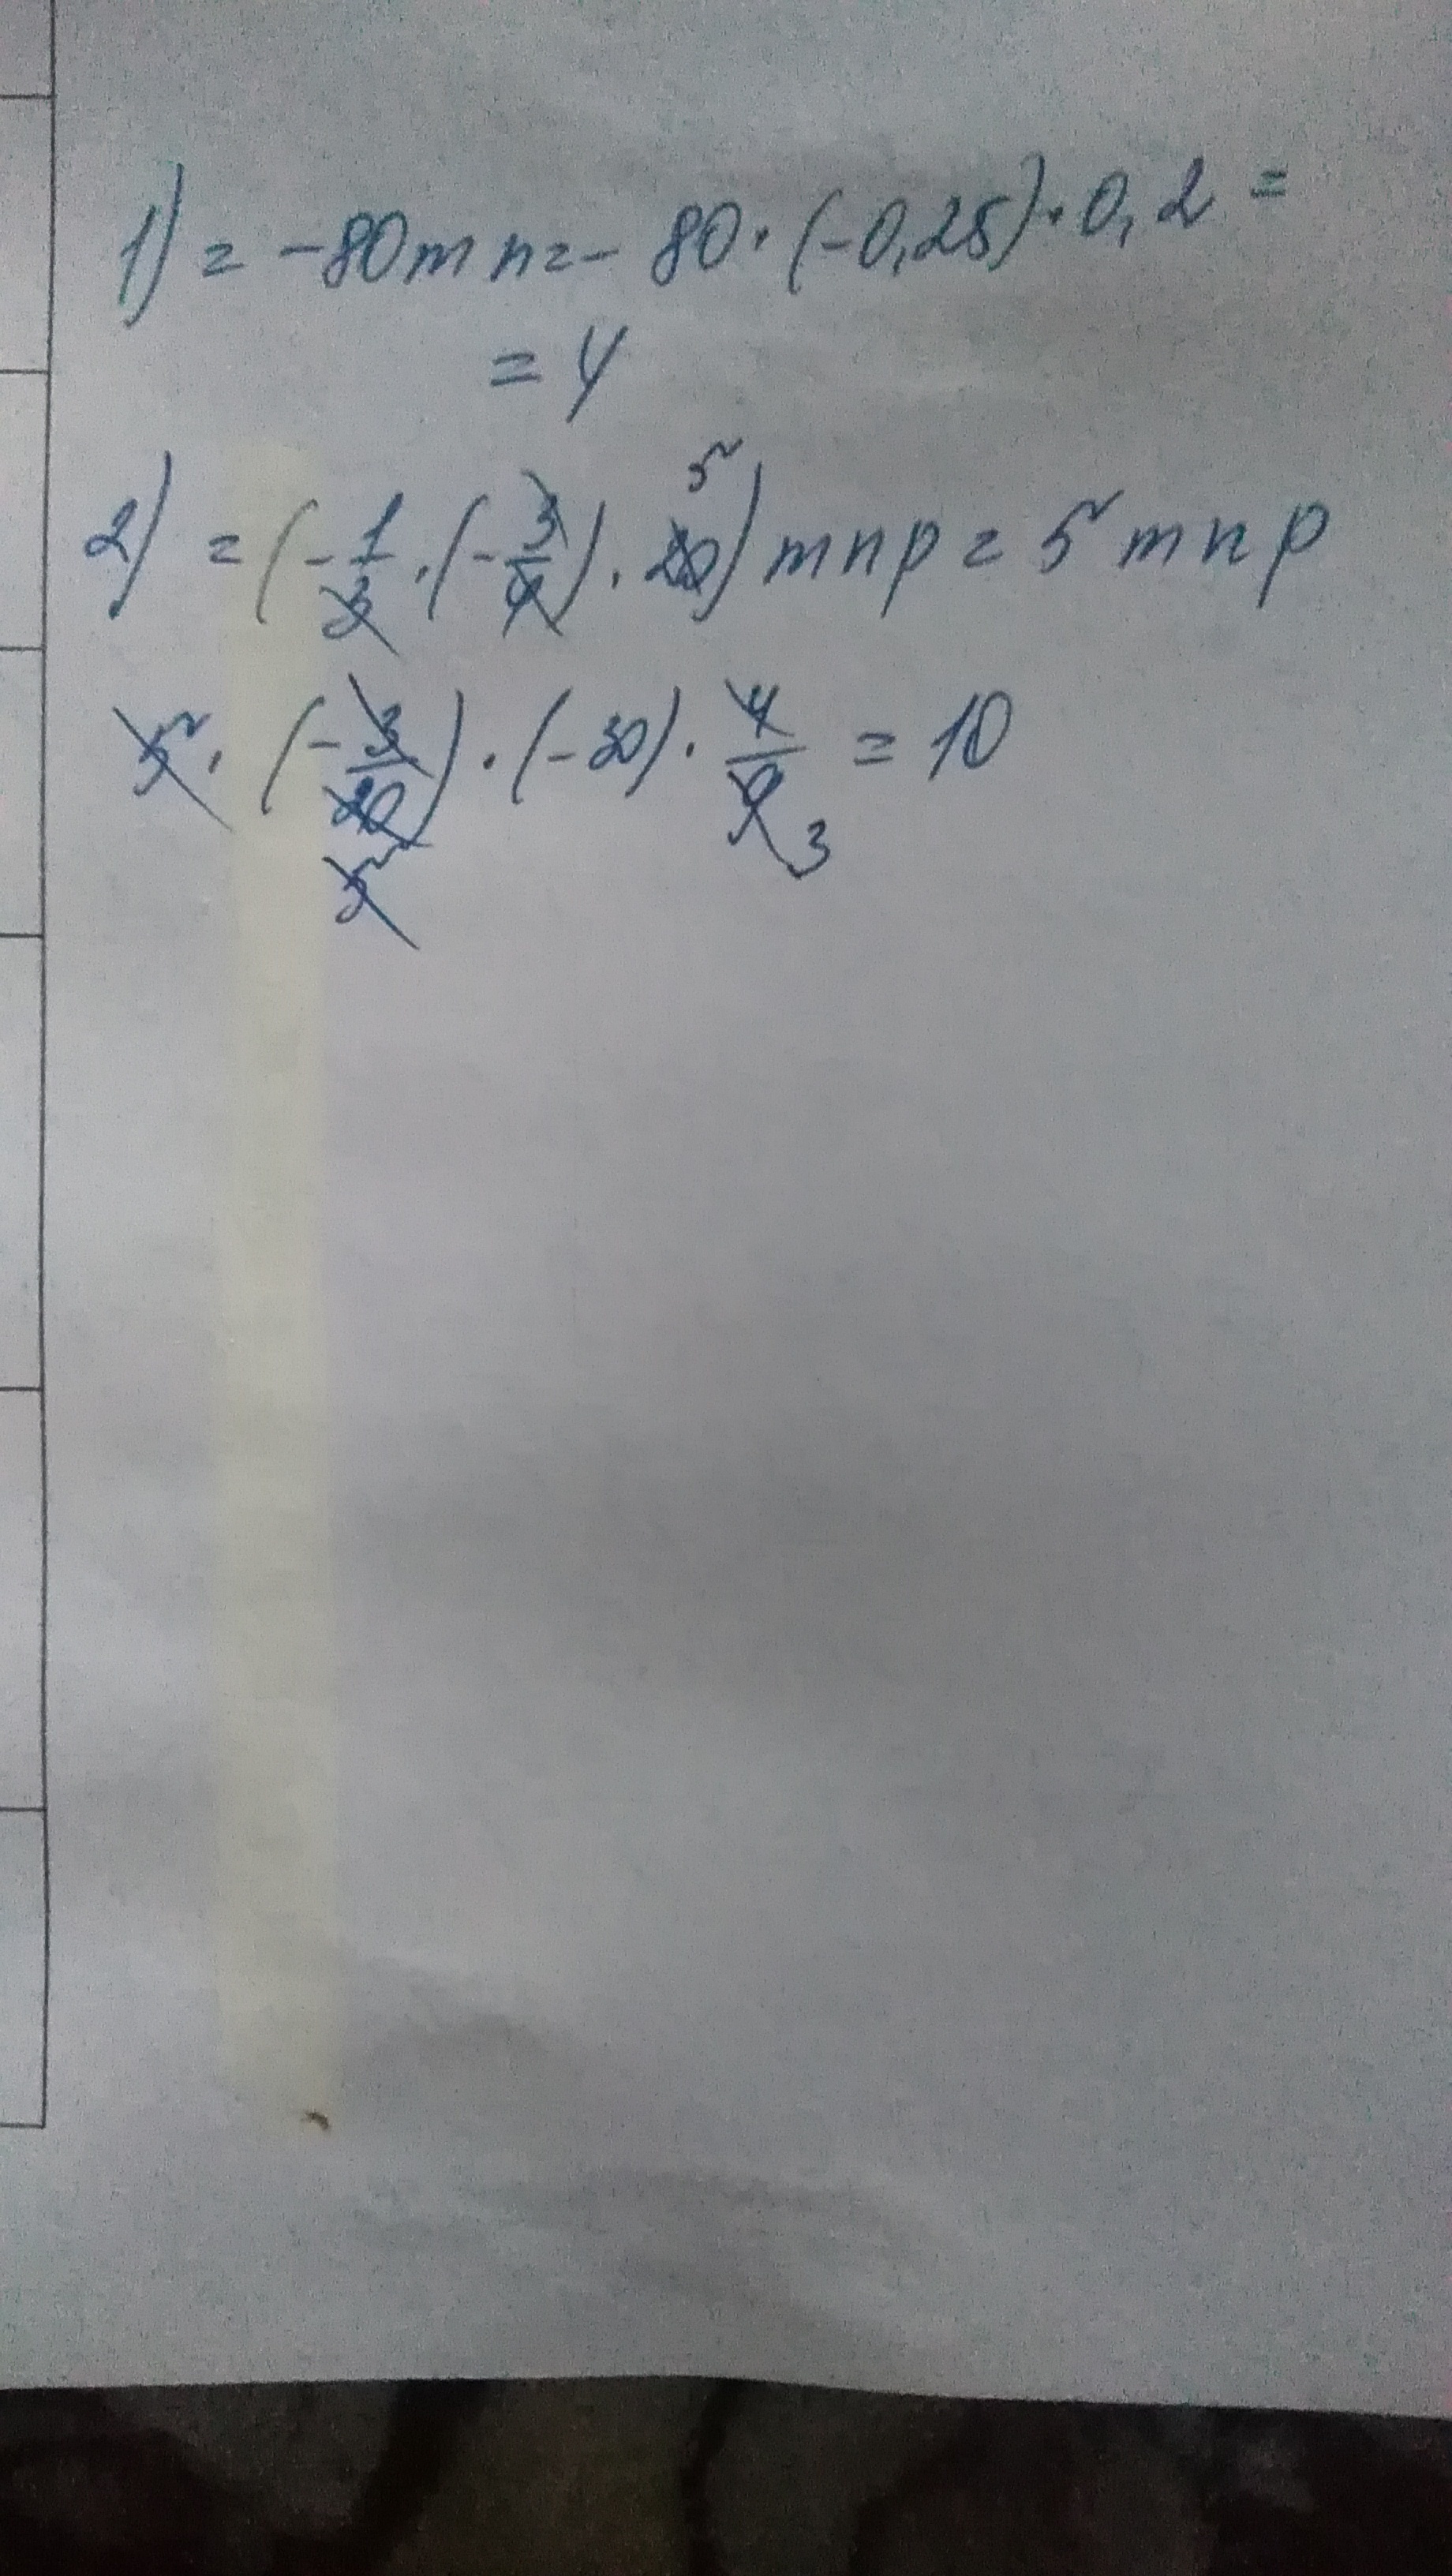 1) = -80mn = - 80 · (-0,25) · 0,2 =
= 4
2) = (- 1/3 · (- 3/4) · 20 5) mnp = 5 mnp
5 · (- 3/20 5) · (-30) · 4/9 3 = 10